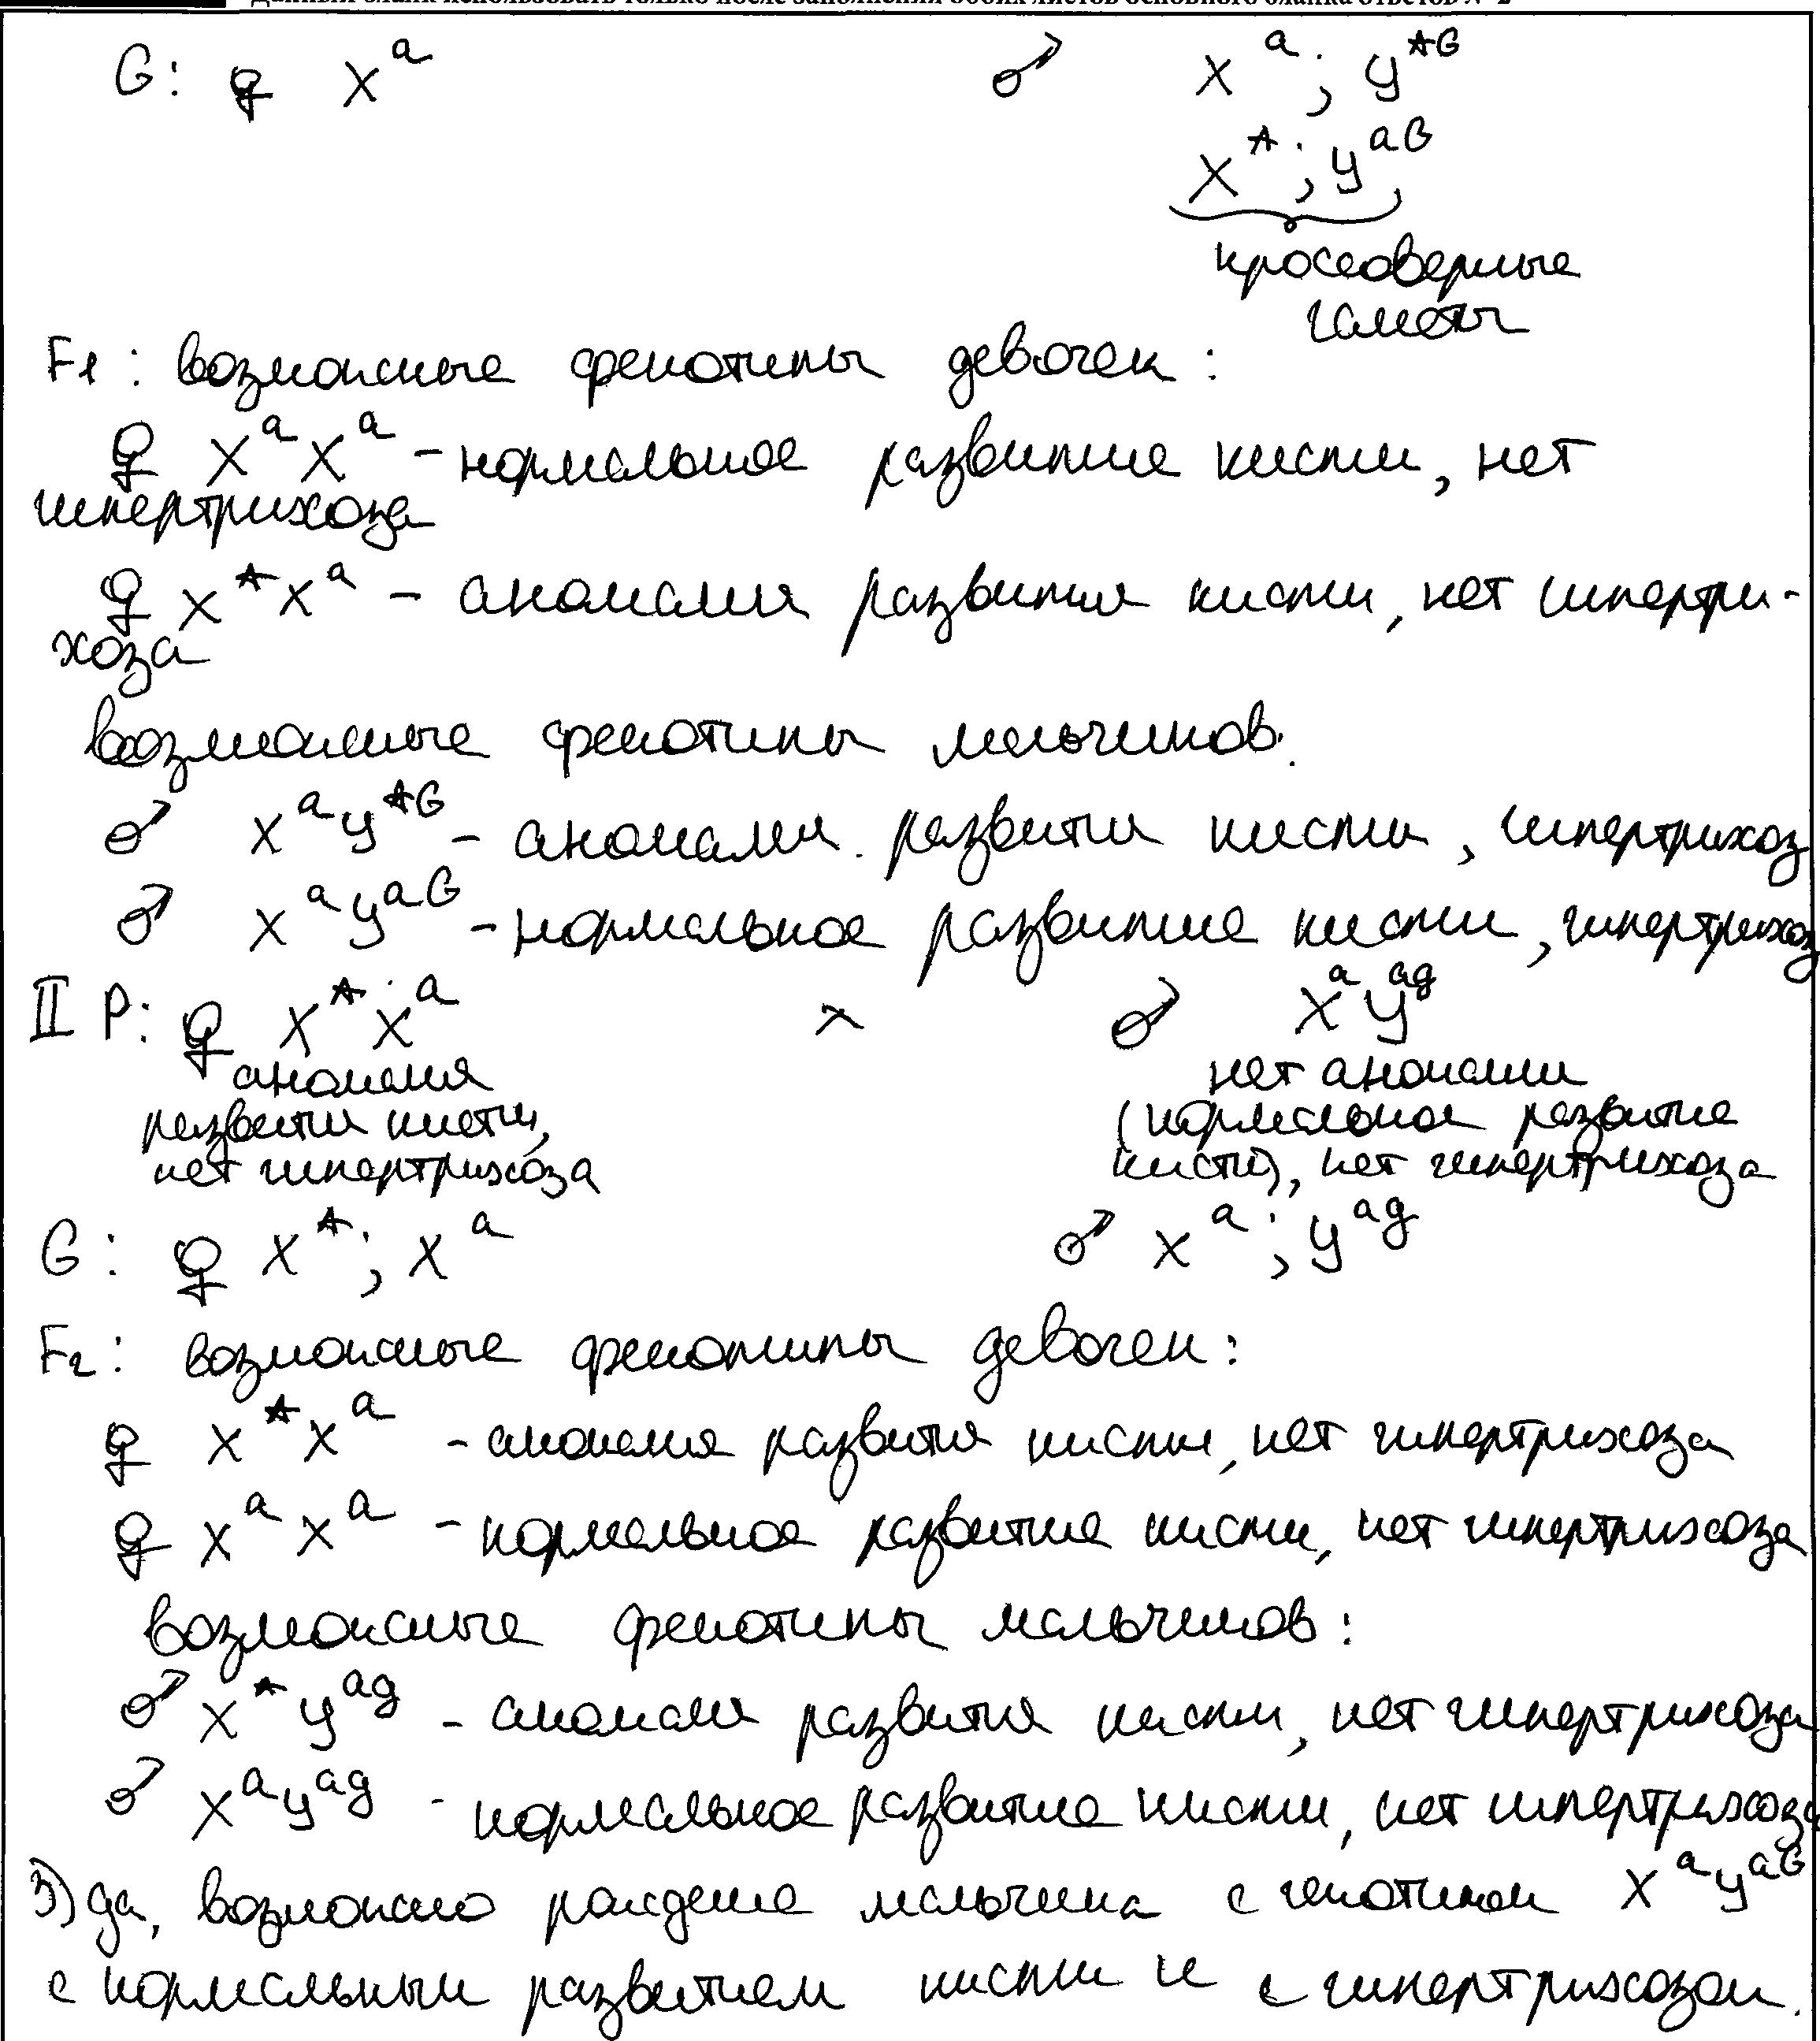 Данный бланк использовать только после заполнения обоих листов основного бланка ответов № 2
G: ♀ X^a ♂ X^a ; Y^AG
X^A ; Y^aG
кроссоверные
гаметы
F1 : возможные фенотипы девочек :
♀ X^a X^a – нормальное развитие кисти, нет
гипертрихоза
♀ X^A X^a – аномалия развития кисти, нет гипертри-
хоза
возможные фенотипы мальчиков:
♂ X^a Y^AG – аномалия развития кисти, гипертрихоз
♂ X^a Y^aG – нормальное развитие кисти, гипертрихоз
II P: ♀ X^A X^a × ♂ X^a Y^ag
аномалия нет аномалии
развития кисти, (нормальное развитие
нет гипертрихоза кисти), нет гипертрихоза
G : ♀ X^A ; X^a ♂ X^a ; Y^ag
F2 : возможные фенотипы девочек :
♀ X^A X^a – аномалия развития кисти, нет гипертрихоза
♀ X^a X^a – нормальное развитие кисти, нет гипертрихоза
возможные фенотипы мальчиков :
♂ X^A Y^ag – аномалия развития кисти, нет гипертрихоза
♂ X^a Y^ag – нормальное развитие кисти, нет гипертрихоза
3) да, возможно рождение мальчика с генотипом X^a Y^aG
с нормальным развитием кисти и с гипертрихозом.